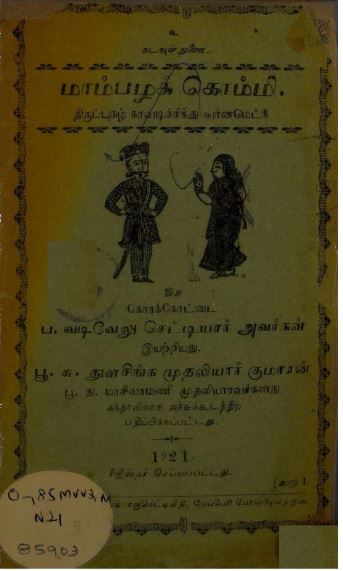 உ
கடவுள் துணை.
மாம்பழக் கொம்மி.
திருப்புகழ் காவடிச்சிந்து வர்னமெட்டு
இது
கோரக்கோட்டை
ப. வடிவேலு செட்டியார் அவர்கள்
இயற்றியது.
பூ. சு. துளசிங்க முதலியார் குமாரன்
பூ. து. மாசிலாமணி முதலியாரவர்களது
அச்சுக்கூடத்திற்
பதிப்பிக்கப்பட்டது.
1921.
ரிஜிஸ்டர் செய்யப்பட்டது.
O-,85MVV3,M
N21
85903